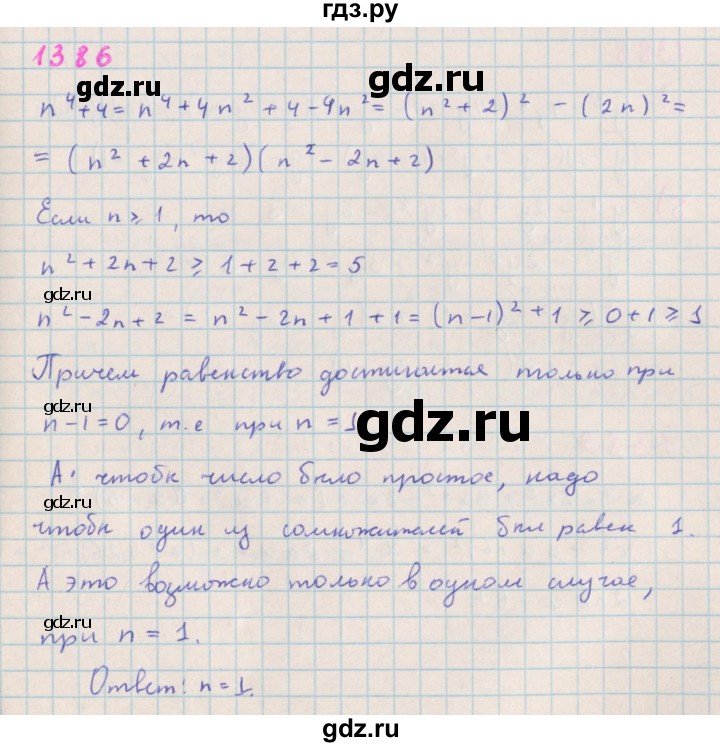 гдз.ру
1386
n⁴+4= n⁴+4n²+4-4n²= (n²+2)² - (2n)²=
= (n²+2n+2)(n²-2n+2)
Если n ⩾ 1, то
n²+2n+2 ⩾ 1+2+2=5
gdz.ru
n²-2n+2 = n²-2n+1+1=(n-1)²+1 ⩾ 0+1 ⩾ 1
Причем равенство достигается только при
n-1=0, т.е при n=1
gdz.ru
gdz.ru
А чтобы число было простое, надо
gdz.ru
чтобы один из сомножителей был равен 1.
А это возможно только в одном случае,
gdz.ru
при n = 1.
Ответ: n=1.
gdz.ru